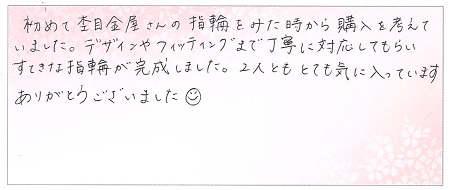 初めて杢目金屋さんの指輪をみた時から購入を考えて
いました。デザインやフィッティングまで丁寧に対応してもらい
すてきな指輪が完成しました。2人ともとても気に入っています
ありがとうございました☺